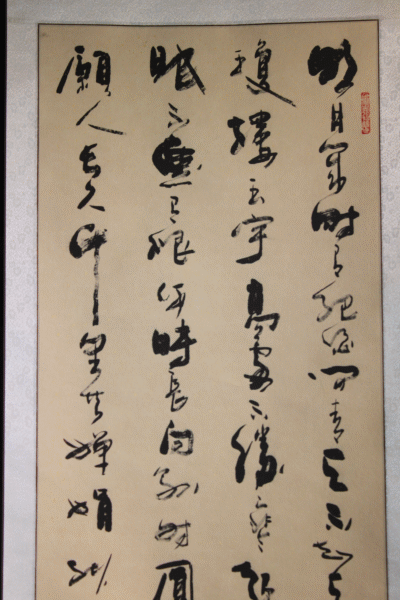 明月幾時有把酒問青天不知
瓊樓玉宇高處不勝寒起
眠不應有恨何時長向別時圓
願人長久千里共嬋娟